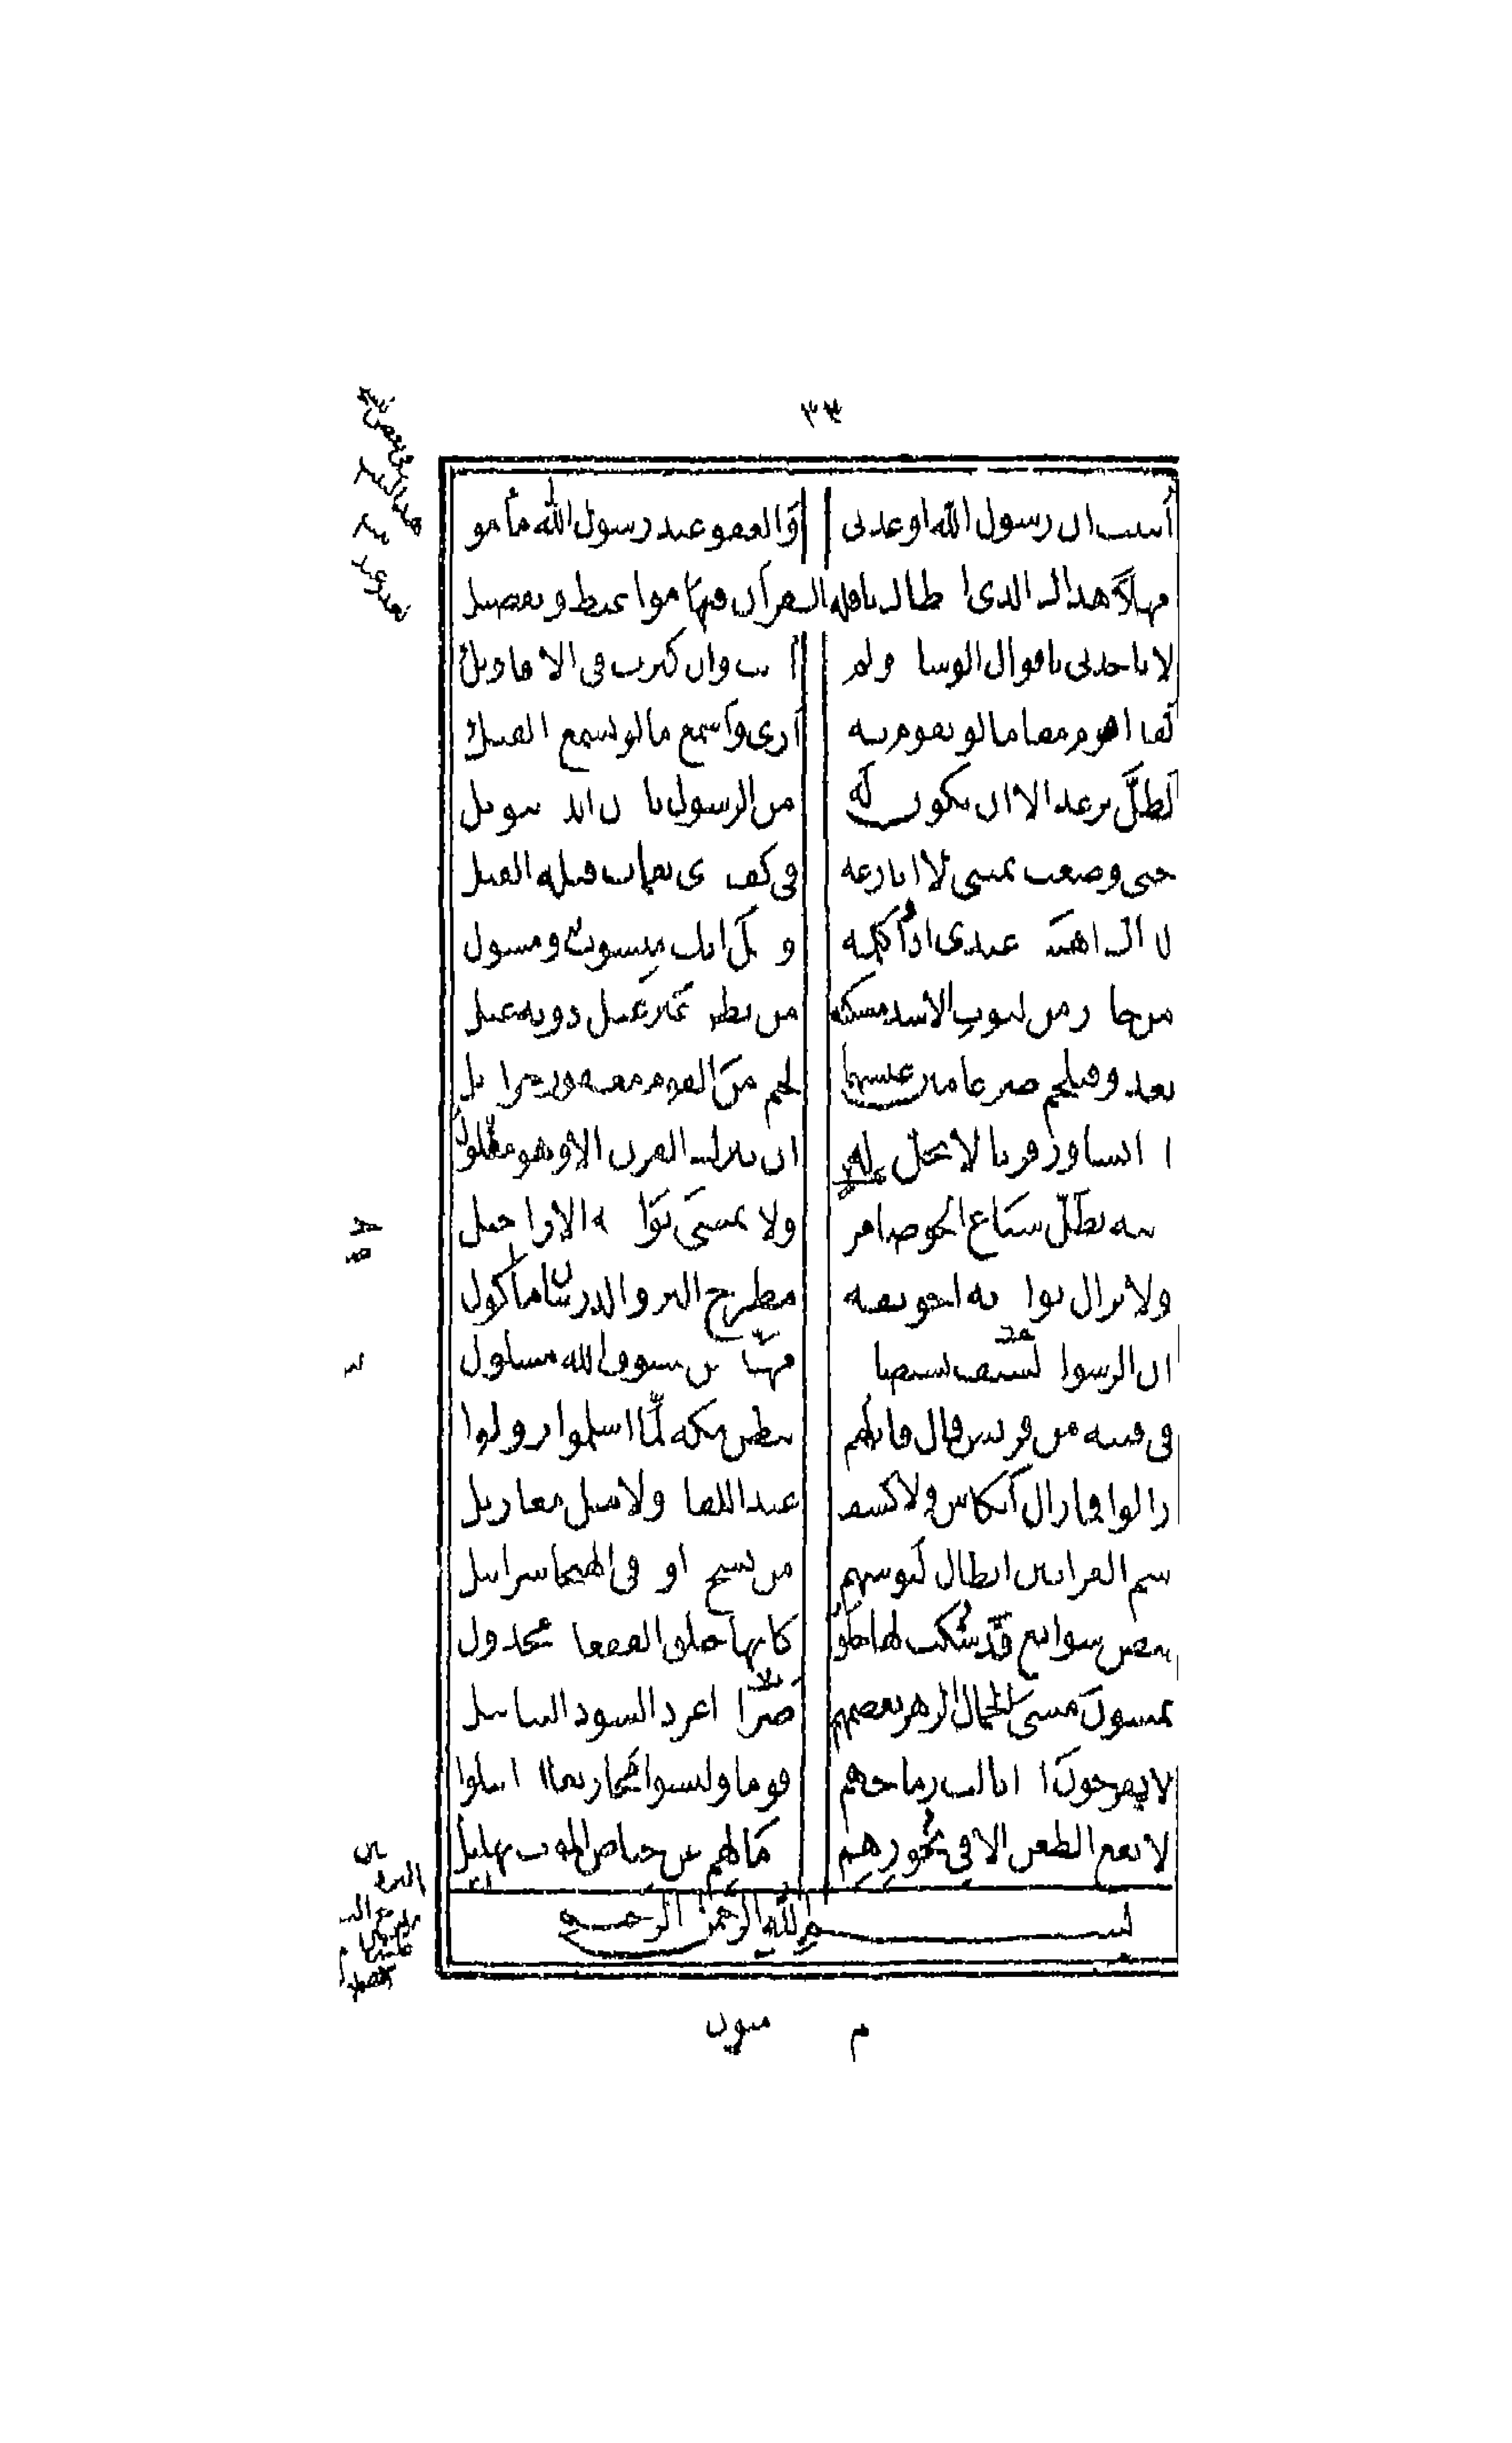 ٣٣
أنبئت ان رسول الله اوعدني والعفو عند رسول الله مأمو
مهلاً هداك الذي اعطاك نافلة القرآن فيها مواعيظ وتفصيل
لا تاخذني باقوال الوشاة ولم اذنب وان كثرت في الاقاويل
لقد اقوم مقاما لو يقوم به أرى وأسمع ما لو يسمع الفيل
لظلَّ يرعد الا ان يكون له من الرسول باذن الله تنويل
حتى وضعت يميني لا انازعه في كف ذي نقمات قيله القيل
لذاك اهيب عندي اذ أكلمه وقيل انك منسوب ومسول
من خادر من ليوث الاسد مسكنه من بطن عثر غيل دونه غيل
يغدو فيلحم ضرغامين عيشهما لحم من القوم معفور خراديل
اذا يساور قرنا لا يحل له ان يترك القرن الا وهو مغلول
منه تظلّ سباع الجو ضامرة ولا تمشّى بواديه الاراجيل
ولا يزال بواديه اخو ثقة مطرح البز والدرسان مأكول
ان الرسول لسيف يستضا مهنّد من سيوف الله مسلول
في فتية من قريش قال قائلهم ببطن مكة لمّا اسلموا زولوا
زالوا فما زال أنكاس ولا كشف عند اللقا ولا ميل معازيل
شم العرانين ابطال لبوسهم من نسج داود في الهيجا سرابيل
بيض سوابغ قد شكت لها حلق كانها حلق القفعا مجدول
يمشون مشي الجمال الزهر يعصمهم ضرب اذا عرد السود التنابيل
لا يفرحون اذا نالت رماحهم قوما وليسوا مجازيعا اذا نيلوا
لا يقع الطعن الا في نحورهم ما لهم عن حياض الموت تهليل
بسم الله الرحمن الرحيم